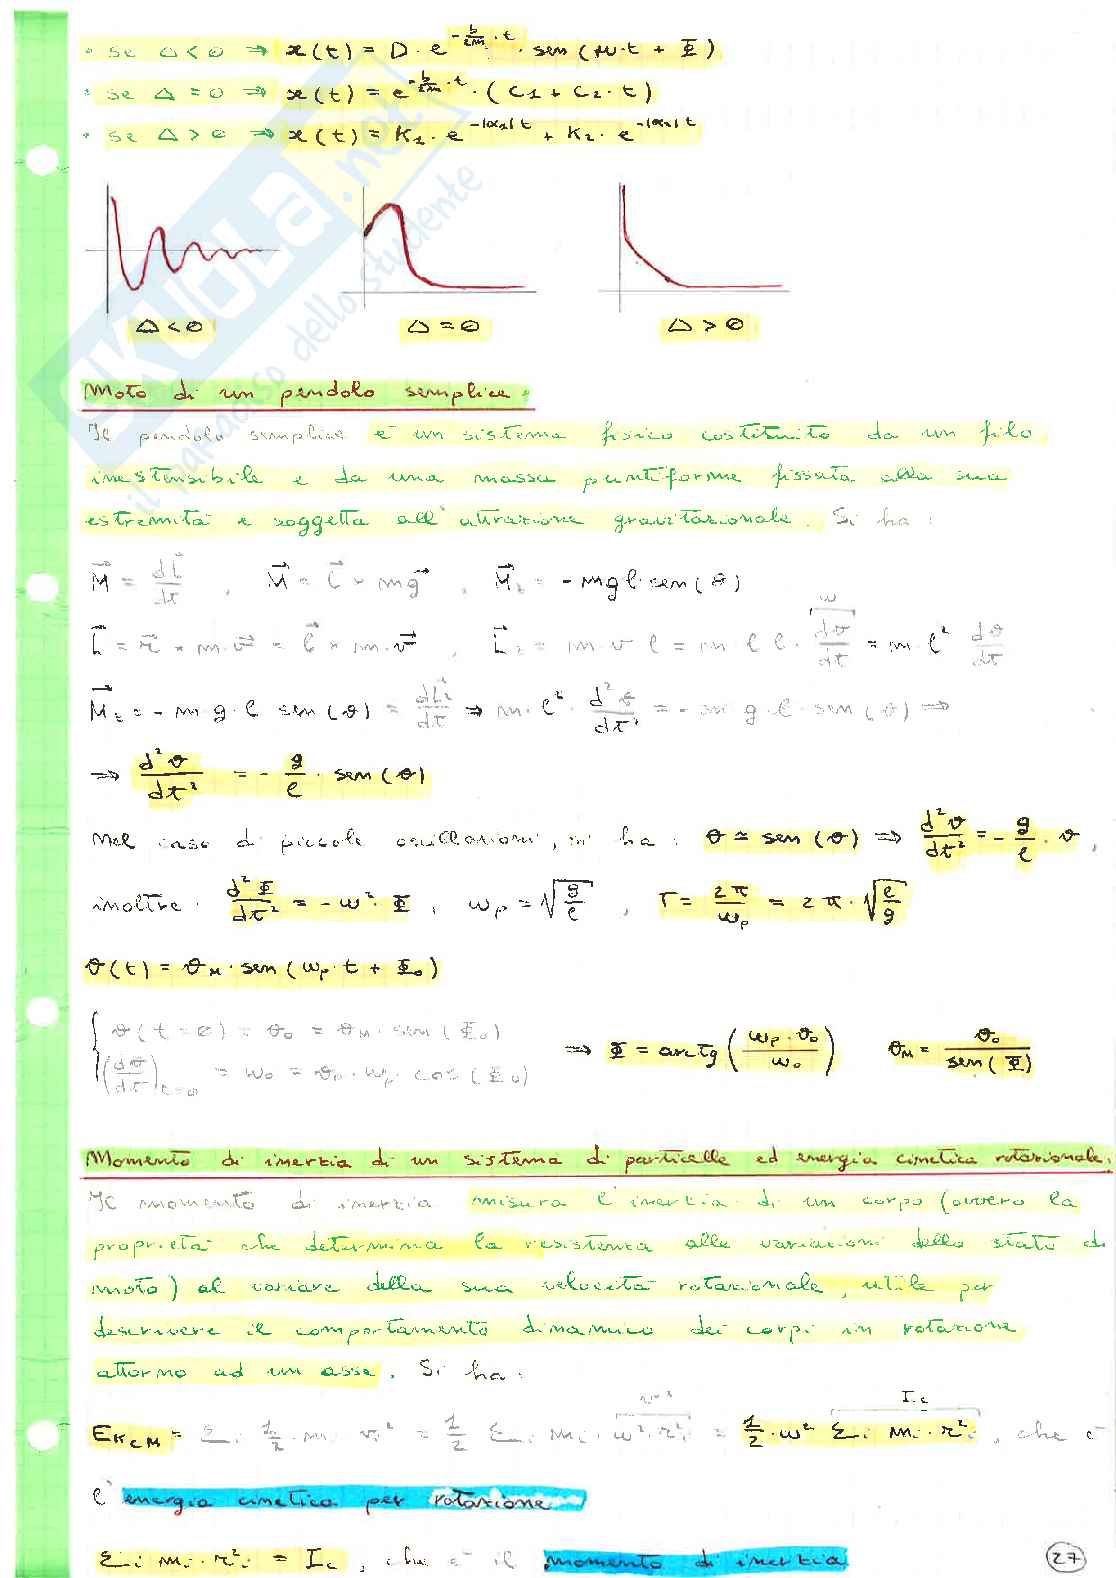 • se Δ<0 ⇒ x(t) = D · e^(-b/2m · t) · sen(ω·t + Φ)
• se Δ=0 ⇒ x(t) = e^(-b/2m · t) · (C1 + C2 · t)
• se Δ>0 ⇒ x(t) = K1 · e^(-|α1|t) + K2 · e^(-|α2|t)
Δ<0 Δ=0 Δ>0
SKUOLA.net
il paradiso dello studente
Moto di un pendolo semplice.
Il pendolo semplice è un sistema fisico costituito da un filo
inestensibile e da una massa puntiforme fissata alla sua
estremità e soggetta all'attrazione gravitazionale. Si ha:
M = dL/dt , M = l × mg , Mz = -mgl·sen(θ)
L = r × m·v = l × m·v , Lz = m·v l = m·l l · dθ/dt = m·l² dθ/dt
ω
Mz = -m·g·l sen(θ) = dLz/dt ⇒ m·l² · d²θ/dt² = -m·g·l·sen(θ) ⇒
⇒ d²θ/dt² = - g/l · sen(θ)
Nel caso di piccole oscillazioni, si ha: θ ≃ sen(θ) ⇒ d²θ/dt² = - g/l · θ ,
inoltre: d²Φ/dt² = -ω²·Φ , ωp = √(g/l) , T = 2π/ωp = 2π·√(l/g)
θ(t) = θM · sen(ωp·t + Φ0)
{ θ(t=0) = θ0 = θM · sen(Φ0)
(dθ/dt)t=0 = ω0 = θp · ωp · cos(Φ0) ⇒ Φ = arctg(ωp·θ0/ω0) θM = θ0/sen(Φ)
Momento di inerzia di un sistema di particelle ed energia cinetica rotazionale.
Il momento di inerzia misura l'inerzia di un corpo (ovvero la
proprietà che determina la resistenza alle variazioni dello stato di
moto) al variare della sua velocità rotazionale, utile per
descrivere il comportamento dinamico dei corpi in rotazione
attorno ad un asse. Si ha:
EKCM = Σi 1/2 · mi · vi² = 1/2 Σi mi · ω²·ri² = 1/2 · ω² Σi mi · ri² , che è
Ic
l'energia cinetica per rotazione
Σi mi · ri² = Ic , che è il momento di inerzia
27